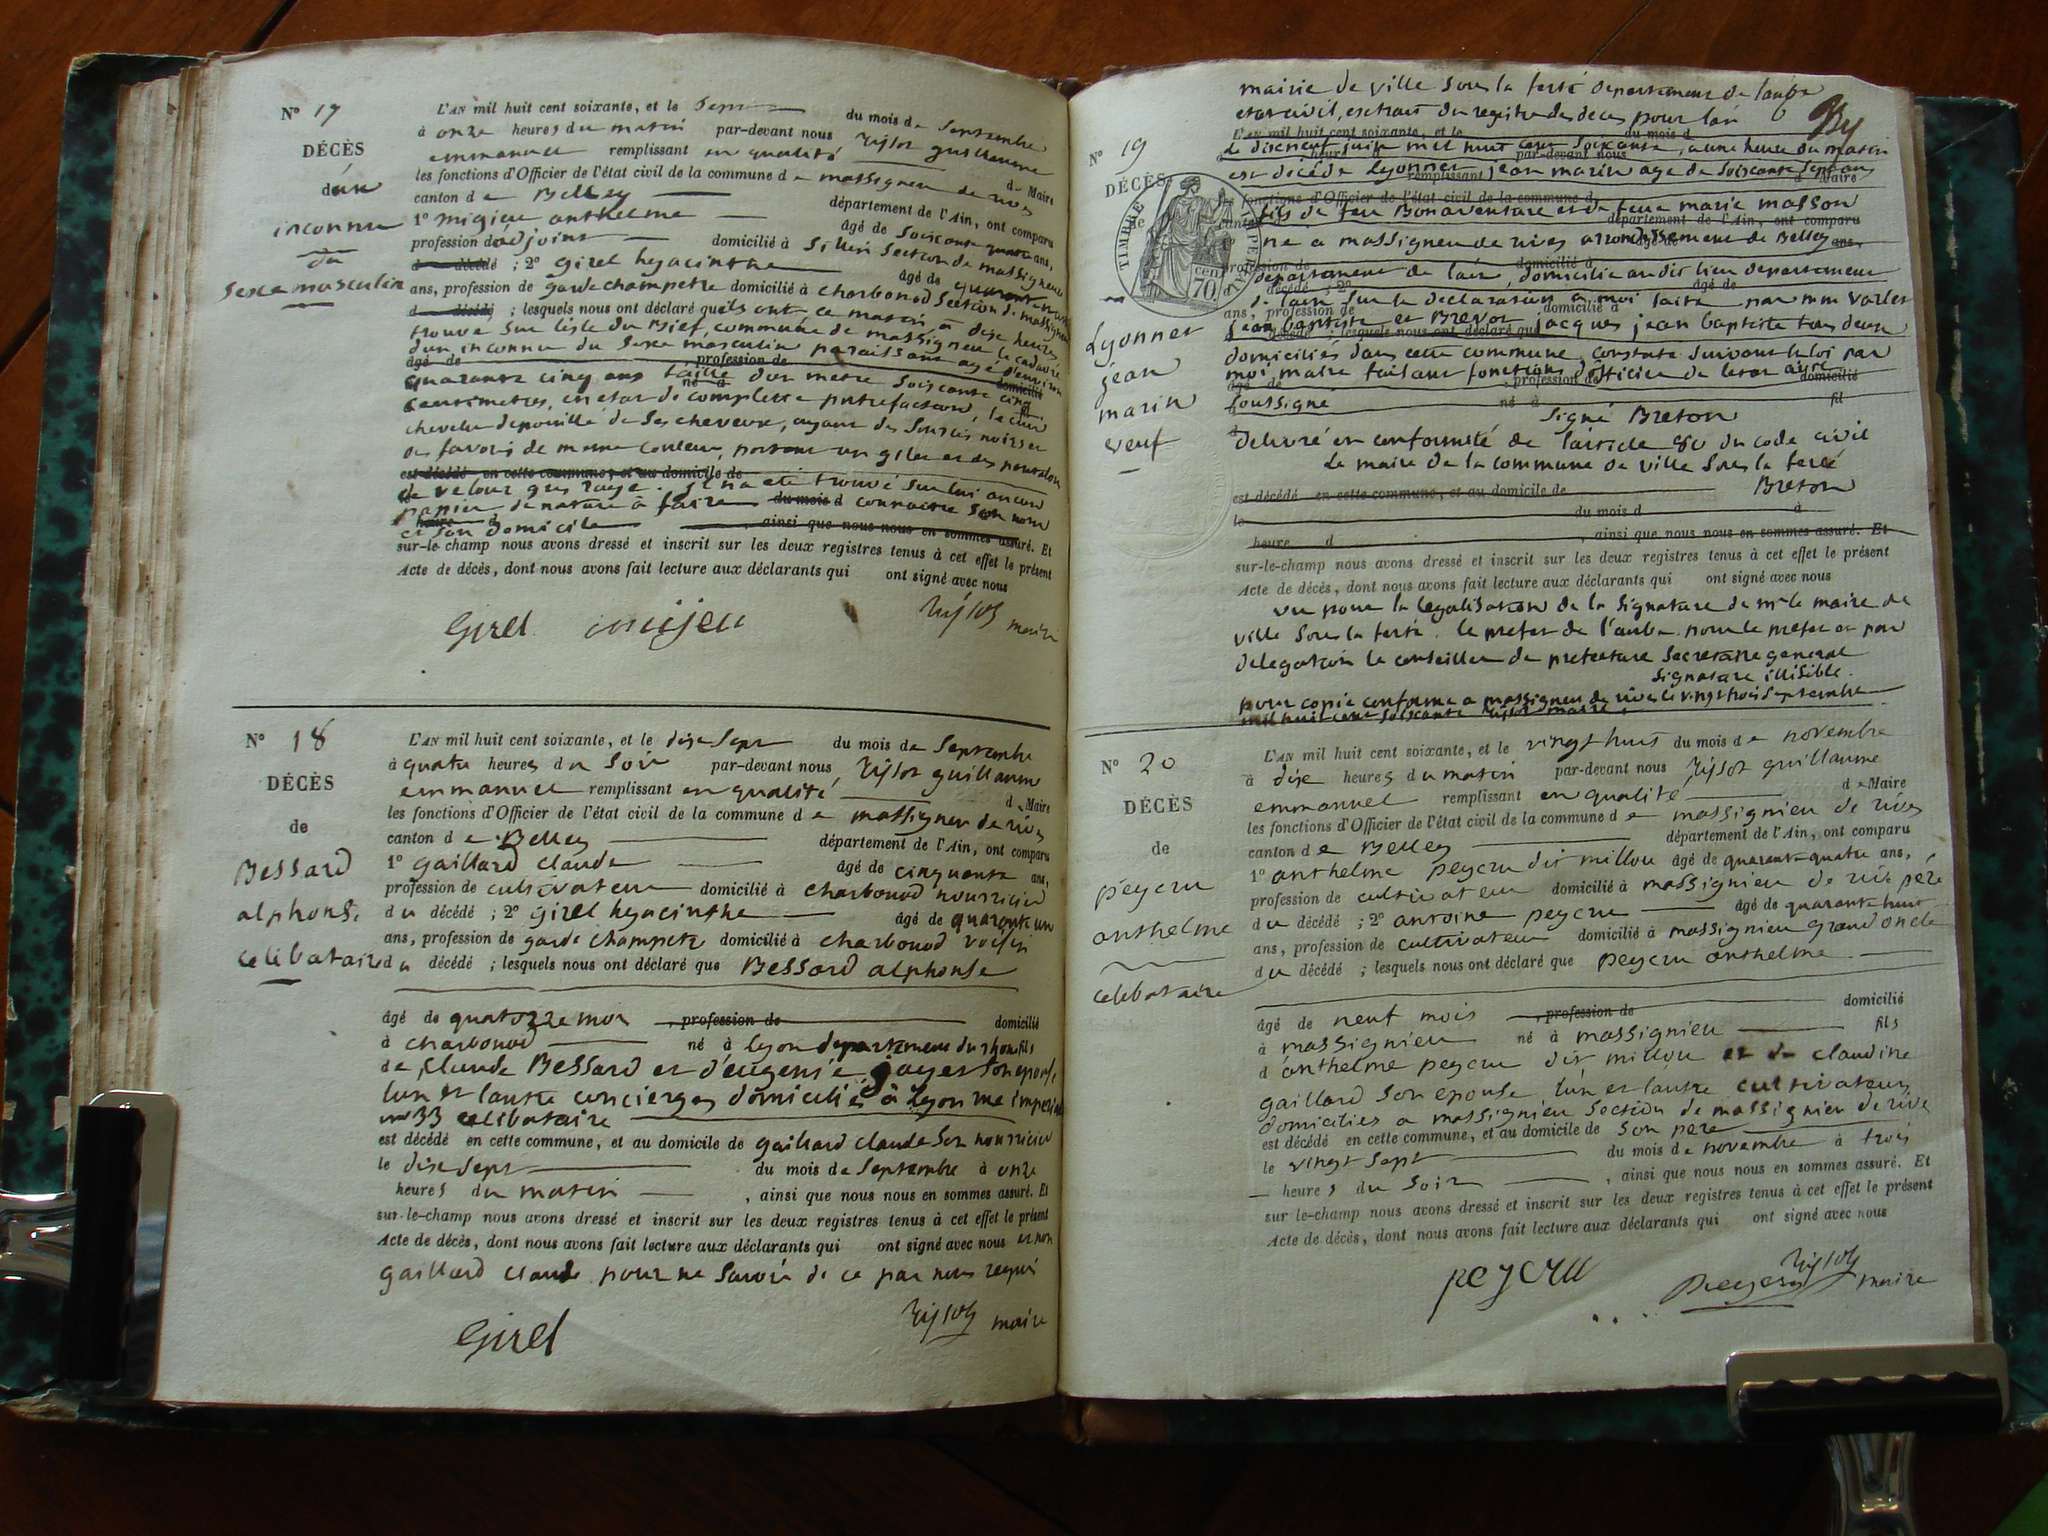 N° 17
DÉCÈS
d'un
inconnu
du
sexe masculin
L'AN mil huit cent soixante, et le sept du mois de Septembre
à onze heures du matin par-devant nous Tissot guillaume
emmanuel remplissant en qualité de Maire
les fonctions d'Officier de l'état civil de la commune de massignieu de rives
canton de Belley département de l'Ain, ont comparu
1° migieu anthelme âgé de soixante quatre ans,
profession d'adjoint domicilié à Section de massignieu
d décédé ; 2° girel hyacinthe âgé de quarante un
ans, profession de garde champetre domicilié à charbonod Section de massignieu
d décédé ; lesquels nous ont déclaré qu'ils ont ce matin à dixe heures
trouvé sur l'isle du Bief, commune de massignieu le cadavre
d'un inconnu du sexe masculin paraissant agé d'environ
âgé de , profession de domicilié
quarante cinq ans taille d'un metre soixante cinq
né à fil
centimetres, en etat de complette putrefaction, le cuir
chevelu depouillé de ses cheveux, ayant des sourcis noirs et
des favoris de meme couleur, portant un gilet et des pantalon
est décédé en cette commune, et au domicile de
de velour gris rayé. il n'a été trouvé sur lui aucun
papier de nature à faire du mois d connaitre son nom
heure d
et son domicile , ainsi que nous nous en sommes assuré. Et
sur-le-champ nous avons dressé et inscrit sur les deux registres tenus à cet effet le présent
Acte de décès, dont nous avons fait lecture aux déclarants qui ont signé avec nous
Girel migieu Tissot maire
N° 18
DÉCÈS
de
Bessard
alphonse
celibataire
L'AN mil huit cent soixante, et le dixe sept du mois de Septembre
à quatre heures du soir par-devant nous Tissot guillaume
emmanuel remplissant en qualité de Maire
les fonctions d'Officier de l'état civil de la commune de massignieu de rives
canton de Belley département de l'Ain, ont comparu
1° gaillard claude âgé de cinquante ans,
profession de cultivateur domicilié à charbonod nourricier
du décédé ; 2° girel hyacinthe âgé de quarante un
ans, profession de garde champetre domicilié à charbonod voisin
du décédé ; lesquels nous ont déclaré que Bessard alphonse
âgé de quatorze mois , profession de domicilié
à charbonod né à Lyon departement du rhone fils
de Claude Bessard et d'eugenie gayet son epouse
lun et lautre concierges domiciliés à Lyon rue imperiale
no 33 celibataire
est décédé en cette commune, et au domicile de gaillard claude son nourricier
le dixe sept du mois de Septembre à onze
heures du matin , ainsi que nous nous en sommes assuré. Et
sur-le-champ nous avons dressé et inscrit sur les deux registres tenus à cet effet le présent
Acte de décès, dont nous avons fait lecture aux déclarants qui ont signé avec nous et non
gaillard claude pour ne savoir de ce par nous requis
Girel Tissot maire
mairie de ville sous la ferté departement de laube
etat civil, extrait du registre des deces pour lan
N° 19
DÉCÈS
de
Lyonnet
jean
marin
veuf
TIMBRE IMPÉRIAL
70 cent
L'AN mil huit cent soixante, et le du mois d
le dixneuf juin mil huit cent soixante, a une heure du matin
heure par-devant nous
est décédé Lyonnet jean marin agé de soixante sept ans
remplissant d Maire
les fonctions d'Officier de l'état civil de la commune d
fils de feu Bonaventure et de feue marie masson
canton d département de l'Ain, ont comparu
né a massignieu de rives arrondissement de Belley
âgé de ans,
profession de domicilié à
departement de lain, domicilié au dit lieu departement
d décédé ; 2° âgé de
de lain sur la declaration a moi faite par mm varlet
ans, profession de domicilié à
jean baptiste et Brevot jacques jean baptiste tous deux
décédé ; lesquels nous ont déclaré que
domiciliés dans cette commune, constaté suivant la loi par
moi, maire faisant fonctions d'officier de letat civil
âgé de , profession de domicilié
soussigné né à fil
signé Breton
Delivré en conformité de larticle 80 du code civil
Le maire de la commune de ville sous la ferté
Breton
est décédé en cette commune, et au domicile de
le du mois d à
heure d , ainsi que nous nous en sommes assuré. Et
sur-le-champ nous avons dressé et inscrit sur les deux registres tenus à cet effet le présent
Acte de décès, dont nous avons fait lecture aux déclarants qui ont signé avec nous
vu pour la legalisation de la signature de mr le maire de
ville sous la ferté. le prefet de l'aube. pour le prefet et par
delegation le conseiller de prefecture secretaire general
signature illisible.
pour copie conforme a massignieu de rives le vingt trois septembre
mil huit cent soixante Tissot maire.
N° 20
DÉCÈS
de
peycru
anthelme
celibataire
L'AN mil huit cent soixante, et le vingt huit du mois de novembre
à dixe heures du matin par-devant nous Tissot guillaume
emmanuel remplissant en qualité de Maire
les fonctions d'Officier de l'état civil de la commune de massignieu de rives
canton de Belley département de l'Ain, ont comparu
1° anthelme peycru dit millou âgé de quarante quatre ans,
profession de cultivateur domicilié à massignieu de rive père
du décédé ; 2° antoine peycru âgé de quarante huit
ans, profession de cultivateur domicilié à massignieu grand oncle
du décédé ; lesquels nous ont déclaré que peycru anthelme
âgé de neuf mois , profession de domicilié
à massignieu né à massignieu fils
d anthelme peycru dit millou et de claudine
gaillard son epouse lun et lautre cultivateurs
domiciliés a massignieu section de massignieu de rive
est décédé en cette commune, et au domicile de son pere
le vingt sept du mois de novembre à trois
heures du soir , ainsi que nous nous en sommes assuré. Et
sur le-champ nous avons dressé et inscrit sur les deux registres tenus à cet effet le présent
Acte de décès, dont nous avons fait lecture aux déclarants qui ont signé avec nous
peycru Peycru Tissot maire